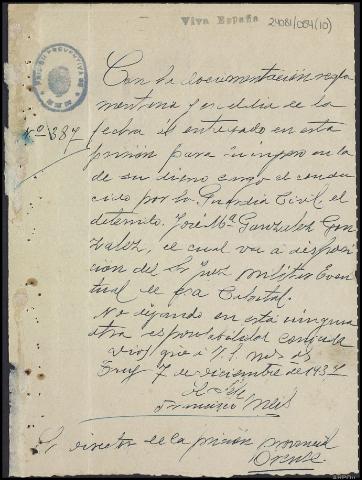 Viva España
24081/004(10)
PRISION PREVENTIVA
Nº 387
Con la documentación regla
mentaria y en el dia de la
fecha es entregado en esta
prisión para ingreso en la
de su digno cargo el condu
cido por la Guardia Civil, el
detenido José Mª Gonzalez Gon
zalez, el cual va a disposi
cion del Sr. Juez Militar Even
tual de esa Capital.
No dejando en esta ninguna
otra responsabilidad
Dios que a V.S. m
Tuy 7 de Diciembre de 1937
El Jefe
Francisco
Sr. director de la prisión Provincial
Orense